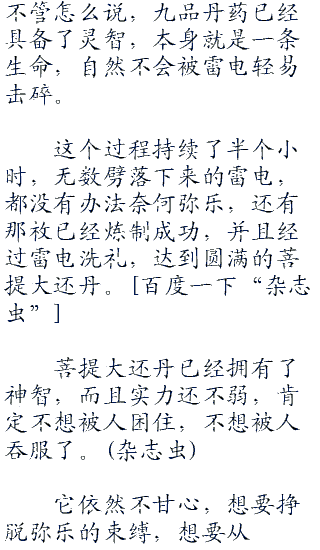 不管怎么说，九品丹药已经
具备了灵智，本身就是一条
生命，自然不会被雷电轻易
击碎。
这个过程持续了半个小
时，无数劈落下来的雷电，
都没有办法奈何弥乐，还有
那枚已经炼制成功，并且经
过雷电洗礼，达到圆满的菩
提大还丹。[百度一下“杂志
虫”]
菩提大还丹已经拥有了
神智，而且实力还不弱，肯
定不想被人困住，不想被人
吞服了。(杂志虫)
它依然不甘心，想要挣
脱弥乐的束缚，想要从